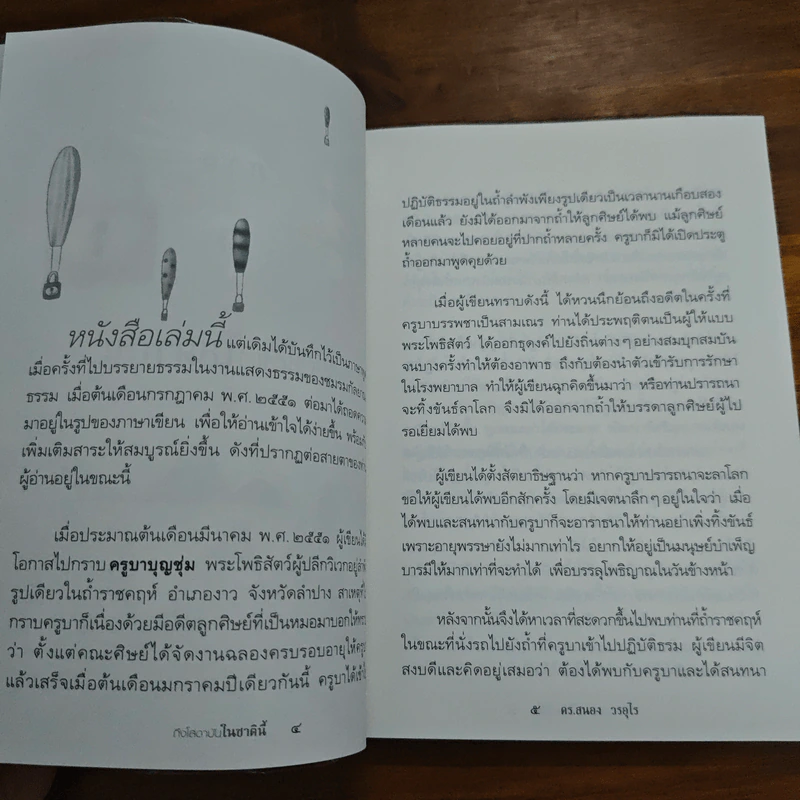 หนังสือเล่มนี้ แต่เดิมได้บันทึกไว้เป็น
เมื่อครั้งที่ไปบรรยายธรรมในงานแสดงธรรมของชมรมกัลยาณ
ธรรม เมื่อต้นเดือนกรกฎาคม พ.ศ.๒๕๕๑ ต่อมาได้ถอด
มาอยู่ในรูปของภาษาเขียน เพื่อให้อ่านเข้าใจได้ง่ายขึ้น
เพิ่มเติมสาระให้สมบูรณ์ยิ่งขึ้น ดังที่ปรากฏต่อสายตาของ
ผู้อ่านอยู่ในขณะนี้
เมื่อประมาณต้นเดือนมีนาคม พ.ศ.๒๕๕๑ ผู้เขียน
โอกาสไปกราบ ครูบาบุญชุ่ม พระโพธิสัตว์ผู้ปลีกวิเวก
รูปเดียวในถ้ำราชคฤห์ อำเภองาว จังหวัดลำปาง
กราบครูบาก็เนื่องด้วยมีอดีตลูกศิษย์ที่เป็นหมอมาบอกให้
ว่า ตั้งแต่คณะศิษย์ได้จัดงานฉลองครบรอบอายุให้
แล้วเสร็จเมื่อต้นเดือนมกราคมปีเดียวกันนี้ ครูบาได้
ถึงโสดาบันในชาตินี้ ๔
ปฏิบัติธรรมอยู่ในถ้ำลำพังเพียงรูปเดียวเป็นเวลานานเกือบสอง
เดือนแล้ว ยังมิได้ออกมาจากถ้ำให้ลูกศิษย์ได้พบ แม้ลูกศิษย์
หลายคนจะไปคอยอยู่ที่ปากถ้ำหลายครั้ง ครูบาก็มิได้เปิดประตู
ถ้ำออกมาพูดคุยด้วย
เมื่อผู้เขียนทราบดังนี้ ได้หวนนึกย้อนถึงอดีตในครั้งที่
ครูบาบรรพชาเป็นสามเณร ท่านได้ประพฤติตนเป็นผู้ให้แบบ
พระโพธิสัตว์ ได้ออกธุดงค์ไปยังถิ่นต่างๆอย่างสมบุกสมบัน
จนบางครั้งทำให้ต้องอาพาธ ถึงกับต้องนำตัวเข้ารับการรักษา
ในโรงพยาบาล ทำให้ผู้เขียนฉุกคิดขึ้นมาว่า หรือท่านปรารถนา
จะทิ้งขันธ์ลาโลก จึงมิได้ออกจากถ้ำให้บรรดาลูกศิษย์ผู้ไป
รอเยี่ยมได้พบ
ผู้เขียนได้ตั้งสัตยาธิษฐานว่า หากครูบาปรารถนาจะลาโลก
ขอให้ผู้เขียนได้พบอีกสักครั้ง โดยมีเจตนาลึกๆอยู่ในใจว่า เมื่อ
ได้พบและสนทนากับครูบาก็จะอาราธนาให้ท่านอย่าเพิ่งทิ้งขันธ์
เพราะอายุพรรษายังไม่มากเท่าไร อยากให้อยู่เป็นมนุษย์บำเพ็ญ
บารมีให้มากเท่าที่จะทำได้ เพื่อบรรลุโพธิญาณในวันข้างหน้า
หลังจากนั้นจึงได้หาเวลาที่สะดวกขึ้นไปพบท่านที่ถ้ำราชคฤห์
ในขณะที่นั่งรถไปยังถ้ำที่ครูบาเข้าไปปฏิบัติธรรม ผู้เขียนมีจิต
สงบดีและคิดอยู่เสมอว่า ต้องได้พบกับครูบาและได้สนทนา
๕ ดร.สนอง วรอุไร